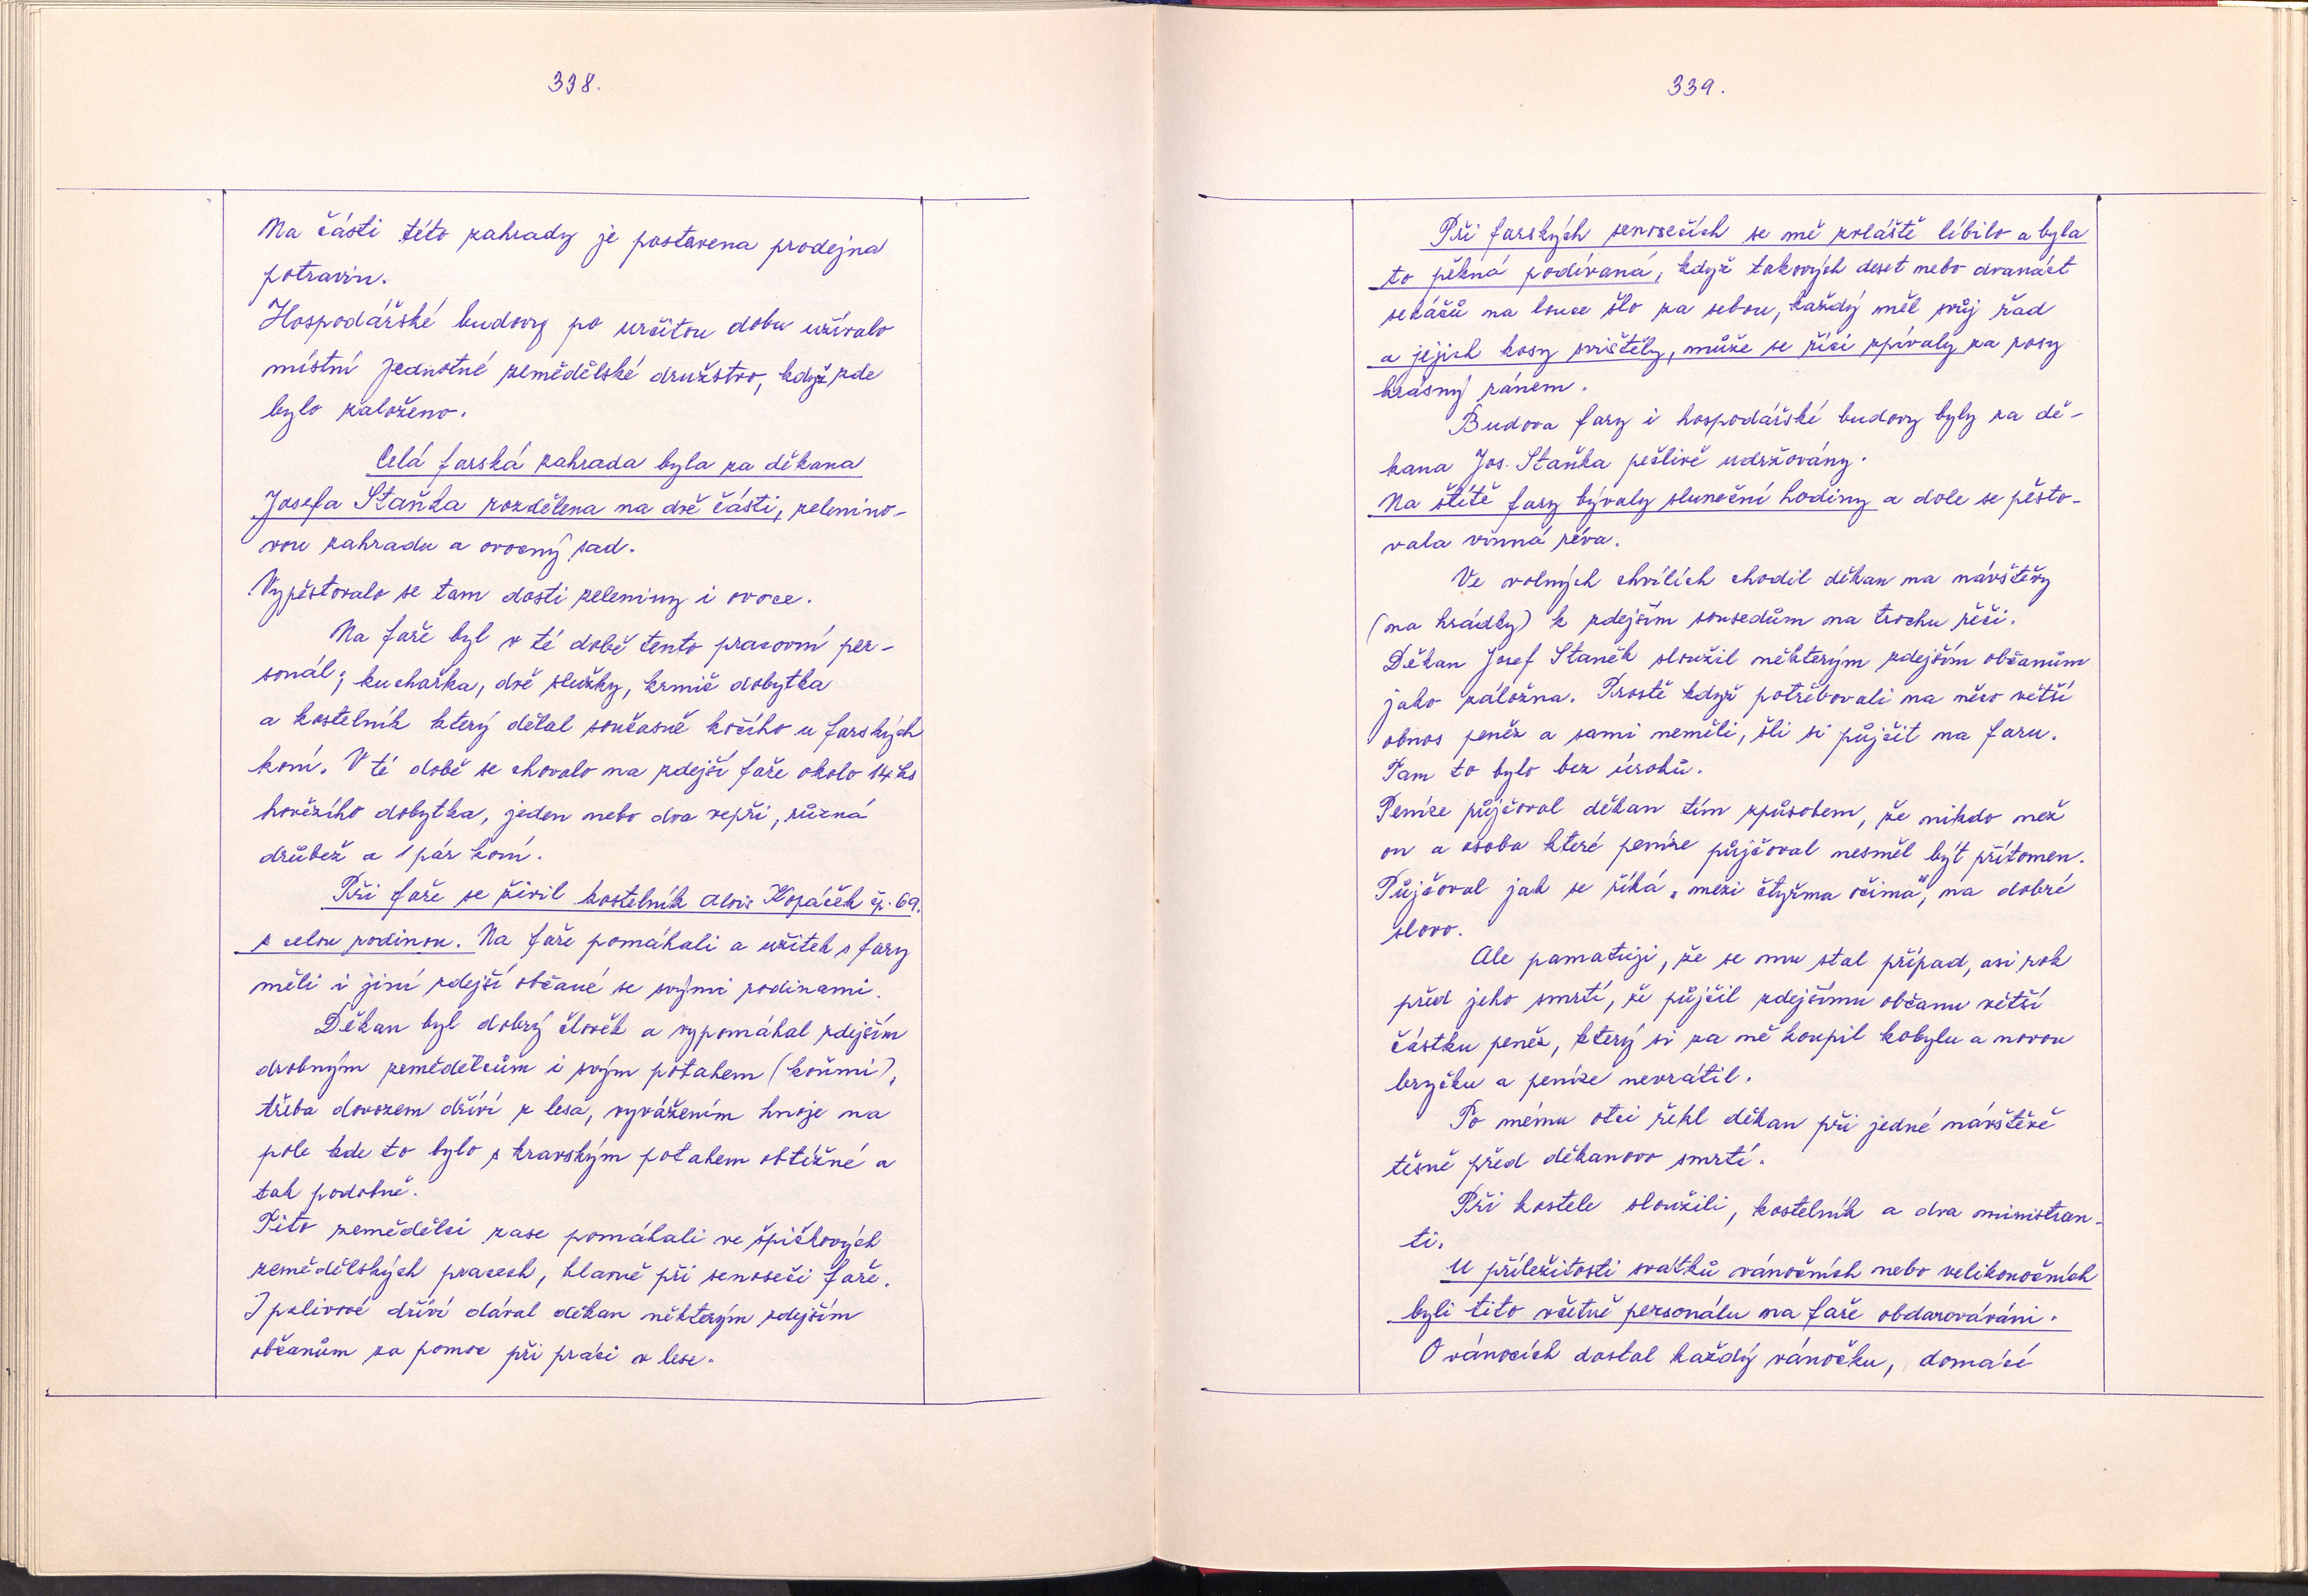 338.
Na části této zahrady je postavena prodejna
potravin.
Hospodářské budovy po určitou dobu užívalo
místní Jednotné zemědělské družstvo, když zde
bylo založeno.
Celá farská zahrada byla za děkana
Josefa Staňka rozdělena na dvě části, zelenino-
vou zahradu a ovocný sad.
Vypěstovalo se tam dosti zeleniny i ovoce.
Na faře byl v té době tento pracovní per-
sonál; kuchařka, dvě služky, krmič dobytka
a kostelník který dělal současně kočího u farských
koní. V té době se chovalo na zdejší faře okolo 14 ks
hovězího dobytka, jeden nebo dva vepři, různá
drůbež a 1 pár koní.
Při faře se živil kostelník Alois Kopáček čp. 69.
s celou rodinou. Na faře pomáhali a užitek s fary
měli i jiní zdejší občané se svými rodinami.
Děkan byl dobrý člověk a vypomáhal zdejším
drobným zemědělcům i svým potahem (koňmi),
třeba dovozem dříví z lesa, vyvážením hnoje na
pole kde to bylo s kravským potahem obtížné a
tak podobně.
Tito zemědělci zase pomáhali ve špičkových
zemědělských pracech, hlavně při senoseči faře.
I palivové dříví dával děkan některým zdejším
občanům za pomoc při práci v lese.
339.
Při farských senosečích se mě zvláště líbilo a byla
to pěkná podívaná, když takových deset nebo dvanáct
sekáčů na louce šlo za sebou, každý měl svůj řad
a jejich kosy svištěly, může se říci zpívaly za rosy
krásný ránem.
Budova fary i hospodářské budovy byly za dě-
kana Jos. Staňka pečlivě udržovány.
Na štítě fary bývaly sluneční hodiny a dole se pěsto-
vala vinná réva.
Ve volných chvílích chodil děkan na návštěvy
(na hrádky) k zdejším sousedům na trochu řeči.
Děkan Josef Staněk sloužil některým zdejším občanům
jako záložna. Prostě když potřebovali na něco větší
obnos peněz a sami neměli, šli si půjčit na faru.
Tam to bylo bez úroků.
Peníze půjčoval děkan tím způsobem, že nikdo než
on a osoba které peníze půjčoval nesměl být přítomen.
Půjčoval jak se říká „mezi čtyřma očima", na dobré
slovo.
Ale pamatuji, že se mu stal případ, asi rok
před jeho smrtí, že půjčil zdejšímu občanu větší
částku peněz, který si za ně koupil kobylu a novou
bryčku a peníze nevrátil.
To mému otci řekl děkan při jedné návštěvě
těsně před děkanovo smrtí.
Při kostele sloužili, kostelník a dva ministran-
ti.
U příležitosti svátků vánočních nebo velikonočních
byli tito včetně personálu na faře obdarováváni.
O vánocích dostal každý vánočku, domácí